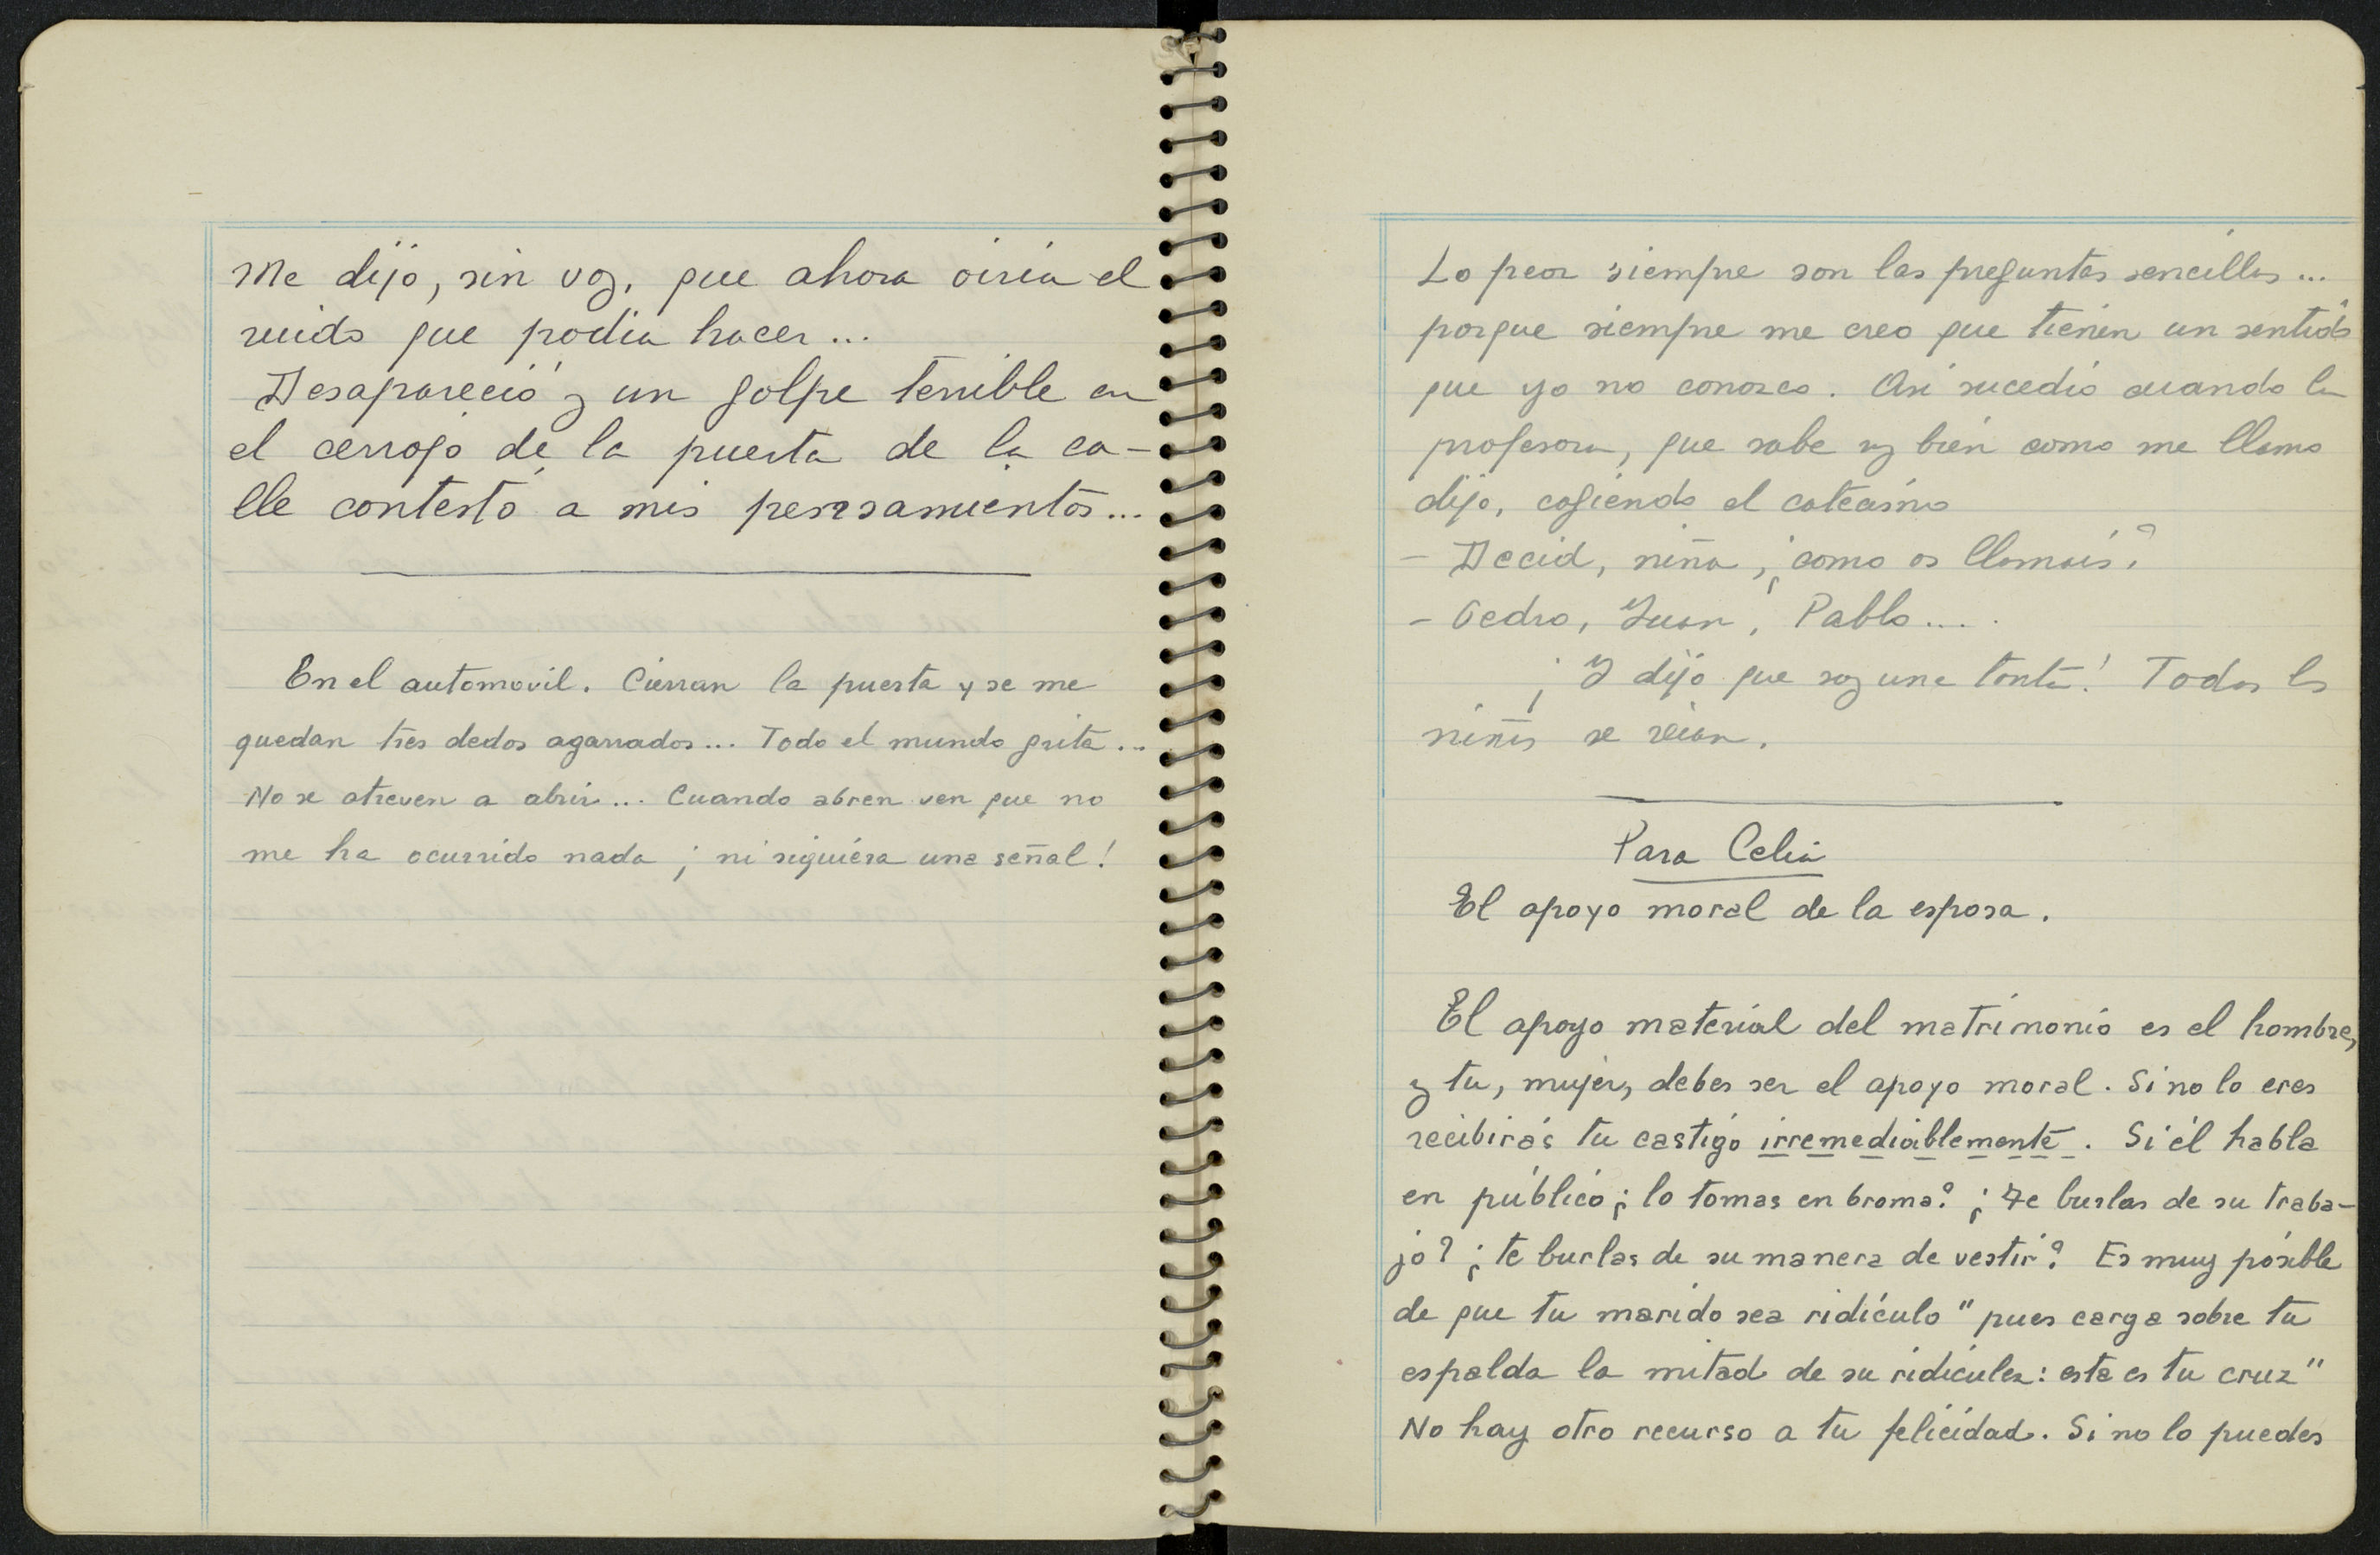 Me dijo, sin voz, que ahora oiria el
ruido que podia hacer...
Desapareció y un golpe terrible en
el cerrojo de la puerta de la ca-
lle contestó a mis pensamientos...
En el automovil. Cierran la puerta y se me
quedan tres dedos agarrados... Todo el mundo grita...
No se atreven a abrir... Cuando abren ven que no
me ha ocurrido nada ¡ni siquiera una señal!
Lo peor siempre son las preguntas sencillas...
porque siempre me creo que tienen un sentido
que yo no conozco. Asi sucedió cuando la
profesora, que sabe muy bien como me llamo
dijo, cogiendo el catecismo
- Decid, niña, ¿como os llamais?
- Pedro, Juan, Pablo....
¡Y dijo que soy una tonta! Todas las
niñas se reian.
Para Celia
El apoyo moral de la esposa.
El apoyo material del matrimonio es el hombre,
y tu, mujer, debes ser el apoyo moral. Si no lo eres
recibirás tu castigo irremediablemente. Si él habla
en público ¿lo tomas en broma? ¿Te burlas de su traba-
jo? ¿te burlas de su manera de vestir? Es muy posible
de que tu marido sea ridículo "pues carga sobre tu
espalda la mitad de su ridiculez: esta es tu cruz"
No hay otro recurso a tu felicidad. Si no lo puedes